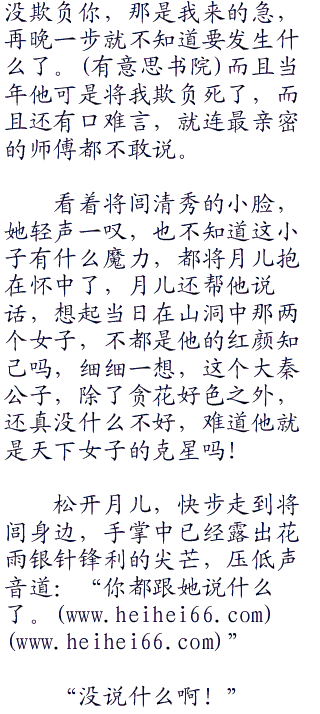 没欺负你，那是我来的急，
再晚一步就不知道要发生什
么了。(有意思书院)而且当
年他可是将我欺负死了，而
且还有口难言，就连最亲密
的师傅都不敢说。
看着将闾清秀的小脸，
她轻声一叹，也不知道这小
子有什么魔力，都将月儿抱
在怀中了，月儿还帮他说
话，想起当日在山洞中那两
个女子，不都是他的红颜知
己吗，细细一想，这个大秦
公子，除了贪花好色之外，
还真没什么不好，难道他就
是天下女子的克星吗！
松开月儿，快步走到将
闾身边，手掌中已经露出花
雨银针锋利的尖芒，压低声
音道：“你都跟她说什么
了。(www.heihei66.com)
(www.heihei66.com)”
“没说什么啊！”